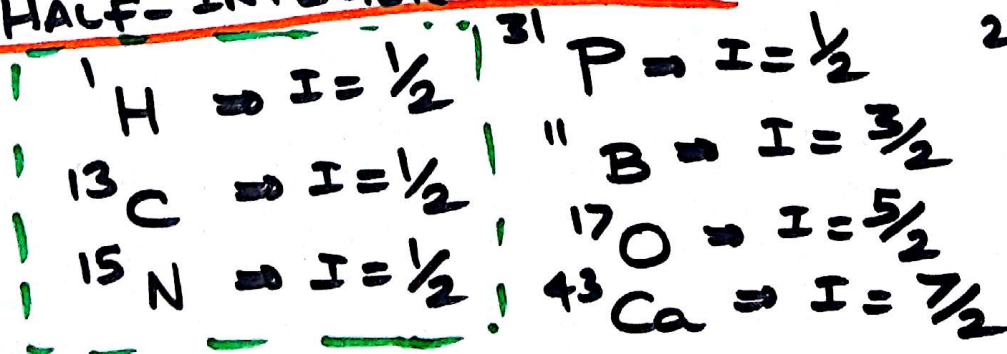 HALF-
¹H ⇒ I = ½
¹³C ⇒ I = ½
¹⁵N ⇒ I = ½
³¹P ⇒ I = ½
¹¹B ⇒ I = 3/2
¹⁷O ⇒ I = 5/2
⁴³Ca ⇒ I = 7/2
2